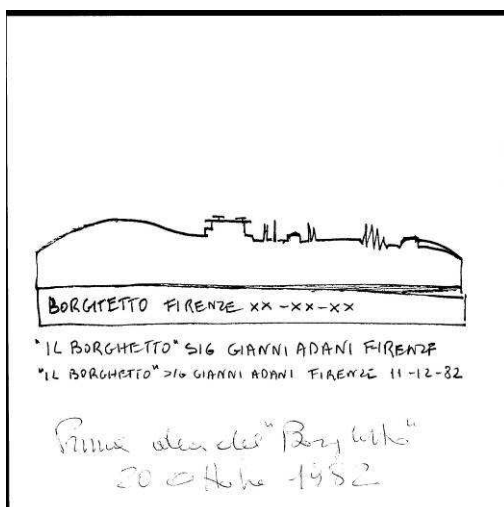 BORGHETTO FIRENZE XX-XX-XX
"IL BORGHETTO" SIG GIANNI ADANI FIRENZE
"IL BORGHETTO" SIG GIANNI ADANI FIRENZE 11-12-82
Prima idea del "Borghetto"
20 Ottobre 1982